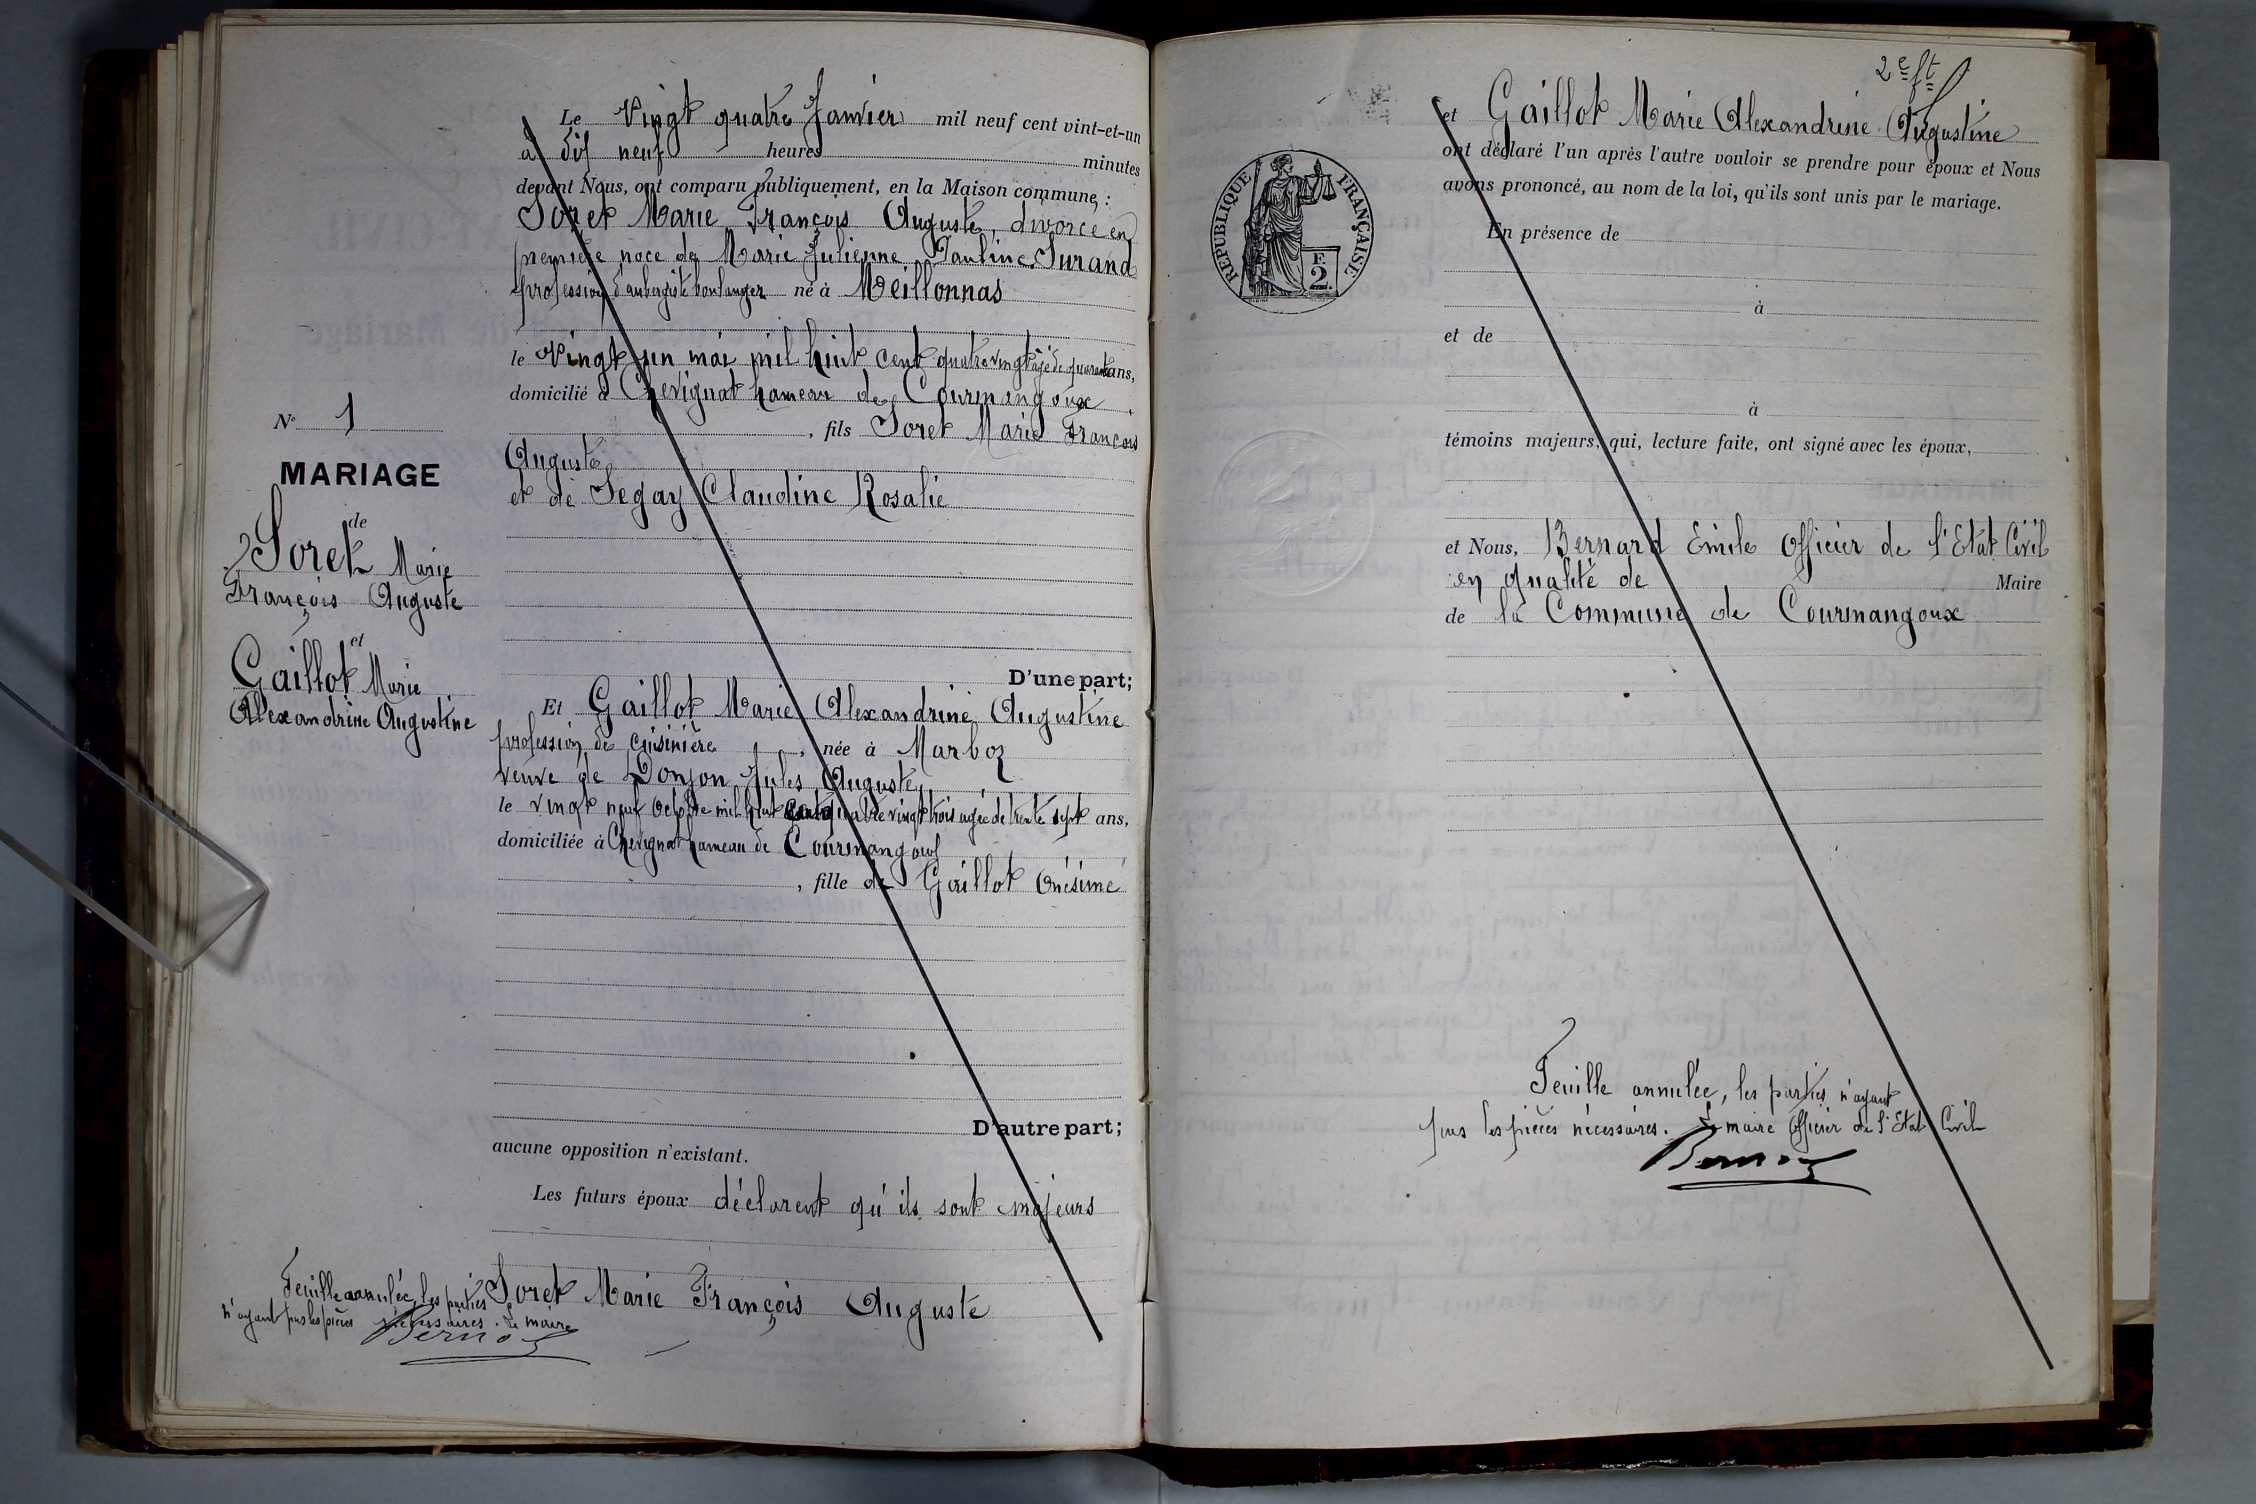 Le Vingt quatre Janvier mil neuf cent vint-et-un
à dix neuf heures minutes
devant Nous, ont comparu publiquement, en la Maison commune :
Soret Marie François Auguste, divorcé en
première noce de Marie Julienne Pauline Durand
profession d'aubergiste boulanger né à Meillonnas
le Vingt un mai mil huit cent quatre vingt âgé de quarante ans,
domicilié à Chevignat hameau de Courmangoux
, fils Soret Marie François
Auguste
et de Segay Claudine Rosalie
D'une part;
Et Gaillot Marie Alexandrine Augustine
profession de cuisinière, née à Marboz
veuve de Donjon Jules Auguste
le vingt neuf octobre mil huit cent quatre vingt trois agée de trente sept ans,
domiciliée à Chevignat hameau de Courmangoux
, fille de Gaillot Onésime
D'autre part;
aucune opposition n'existant.
Les futurs époux déclarent qu'ils sont majeurs
Soret Marie François Auguste
N° 1
MARIAGE
de
Soret Marie
François Auguste
et
Gaillot Marie
Alexandrine Augustine
Feuille annulée, les parties
n'ayant pas les pièces nécessaires. Le maire
2e ft
et Gaillot Marie Alexandrine Augustine
ont déclaré l'un après l'autre vouloir se prendre pour époux et Nous
avons prononcé, au nom de la loi, qu'ils sont unis par le mariage.
En présence de
à
et de
à
témoins majeurs, qui, lecture faite, ont signé avec les époux,
et Nous, Bernard Emile Officier de l'Etat Civil
en qualité de Maire
de la Commune de Courmangoux
Feuille annulée, les parties n'ayant
pas les pièces nécessaires. Le maire Officier de l'Etat Civil
REPUBLIQUE FRANÇAISE
F.
2.